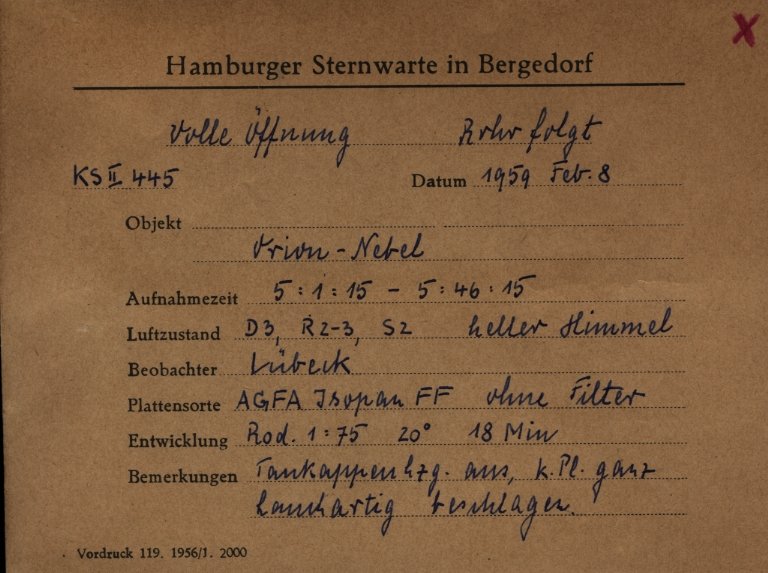 X
Hamburger Sternwarte in Bergedorf
Volle Öffnung Rohr folgt
KS II 445 Datum 1959 Feb. 8
Objekt
Orion-Nebel
Aufnahmezeit 5:1:15 - 5:46:15
Luftzustand D3, R2-3, S2 heller Himmel
Beobachter Lübeck
Plattensorte AGFA Isopan FF ohne Filter
Entwicklung Rod. 1:75 20° 18 Min
Bemerkungen Taukappenhzg. aus, k. Pl. ganz
hauchartig beschlagen.
Vordruck 119. 1956/1. 2000